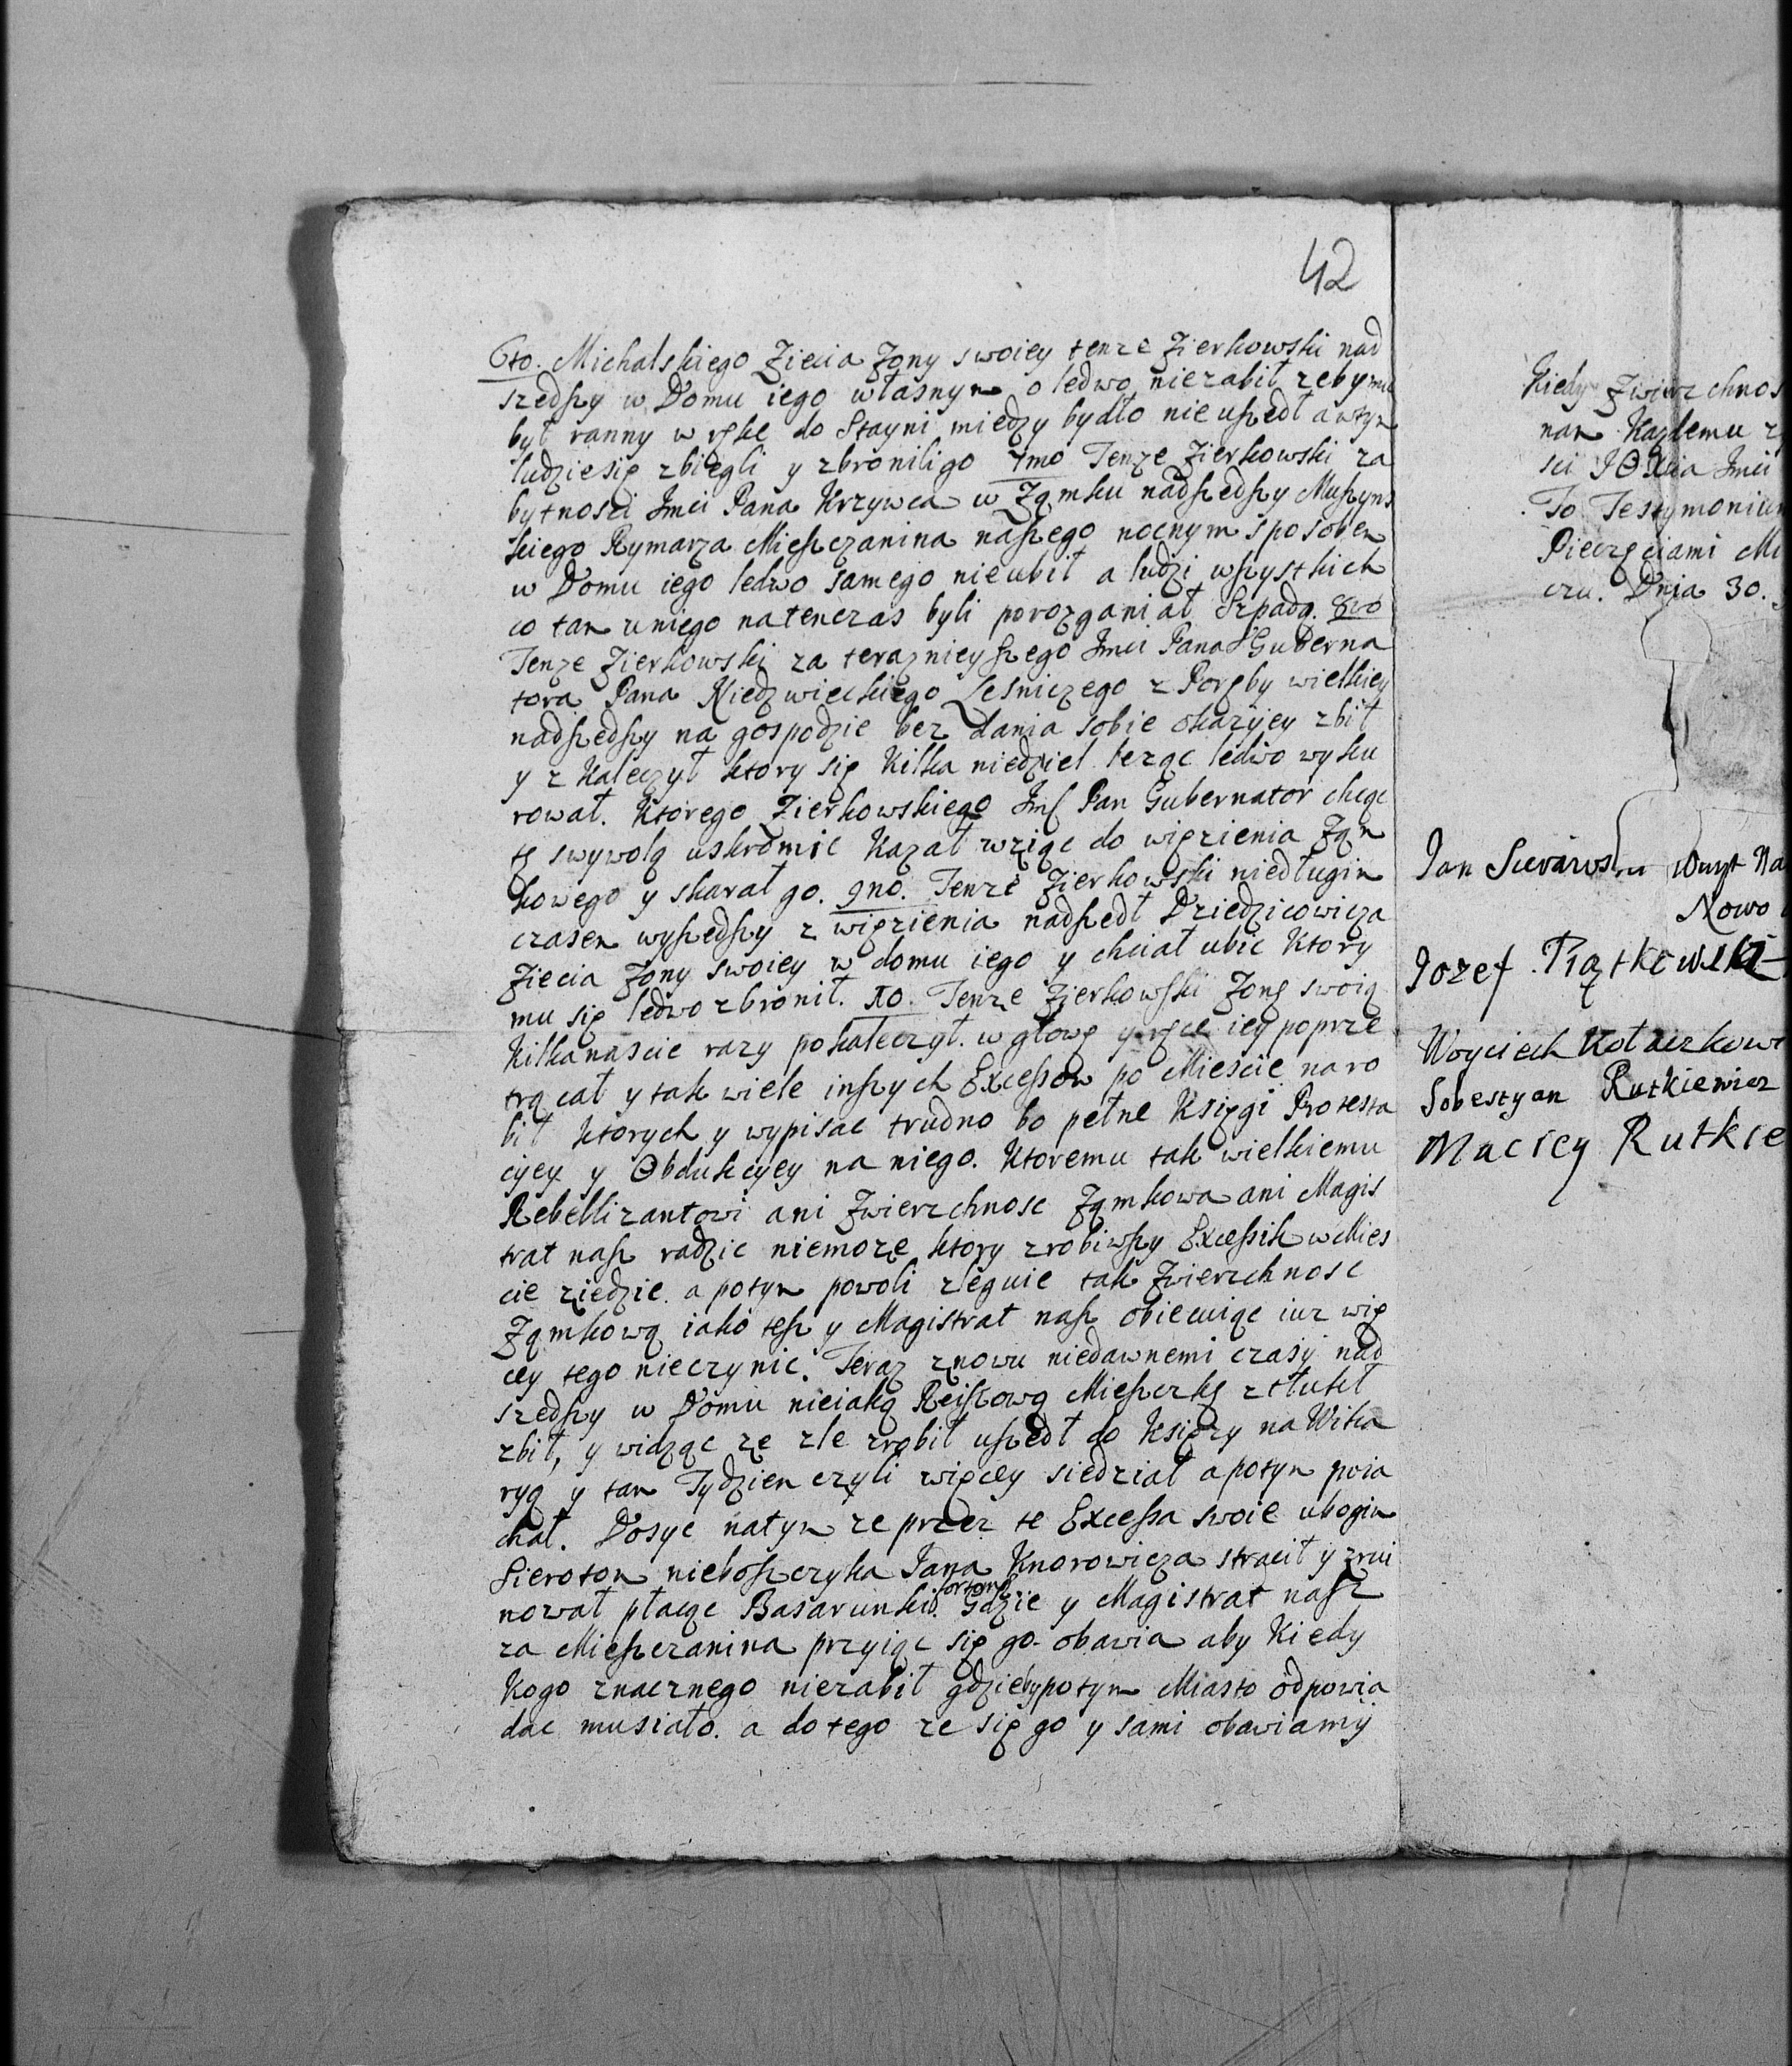 42
6to. Michalskiego Ziecia Zony swoiey tenze Zierkowski nad
szedszy w Domu iego własnym o ledwo niezabił zeby mu
był ranny w ręke do Stayni między bydło nie uszedł a w tym
ludzie się zbiegli y zbronili go 7mo Tenze Zierkowski za
bytnosci Jmci Pana Krzywca w Ząmku nadszedszy Muszyns
kiego Rymarza Mieszczanina naszego nocnym sposobem
w Domu iego ledwo samego nieubił a ludzi wszystkich
co tam u niego natenczas byli porozganiał Szpadą. 8vo
Tenze Zierkowski za terazniejszego Jmci Pana Guberna
tora Pana Niedzwieckiego Lesniczego z Poręby wielkiey
nadszedszy na gospodzie bez dania sobie okazyiey zbił
y z kaleczył ktory się kilka niedziel leząc ledwo wyku
rował. Ktorego Zierkowskiego Jms Pan Gubernator chcąc
tę swywolą uskromic kazał wziąc do więzienia Ząm
kowego y skarał go. 9no. Tenze Zierkowski niedługim
czasem wyszedszy z więzienia nadszedł Dziedzicowicza
Ziecia Zony swoiey w domu iego y chciał ubic ktory
mu się ledwo zbronił. Xo. Tenze Zierkowski Zonę swoią
kilkanascie razy pokaleczył. w głowę y ręce iey poprze
trącał y tak wiele inszych Excessow po Miescie naro
bił ktorych y wypisac trudno bo pełne Księgi Protesta
cyey y Obdukcyey na niego. Ktoremu tak wielkiemu
Rebellizantowi ani Zwierzchnosc Ząmkowa ani Magis
trat nasz radzic niemoze ktory zrobiwszy Excessik w Mies
cie ziedzie a potym powoli zleguie tak Zwierzchnosc
Ząmkową iako tesz y Magistrat nasz obiecuiąc iuz wię
cey tego nieczynic. Teraz znowu niedawnemi czasy nad
szedszy w Domu nieiaką Reissową Mieszczkę ztłukł
zbił, y widząc ze zle zrobił uszedł do Księzy na Wika
ryą y tam Tydzien czyli więcey siedział a potym poia
chał. Dosyc natym ze przez te Excessa swoie ubogim
Sierotom nieboszczyka Jana Knorowicza stracił y zrui
nował fortunę płacąc Basarunki. Gdzie y Magistrat nasz
za Mieszczanina przyiąc się go obawia aby kiedy
kogo znacznego niezabił gdzieby potym Miasto odpowia
dac musiało. a do tego ze się go y sami obawiamy
Kiedy Zwierzchnos
nam Kazdemu
sci JOXcia Jmci
To Testymonium
Pieczęciami
czu. Dnia 30.
Jan
Nowo
Jozef Piątkowski
Woyciech
Sobestyan Rutkiewicz
Maciey Rutkie